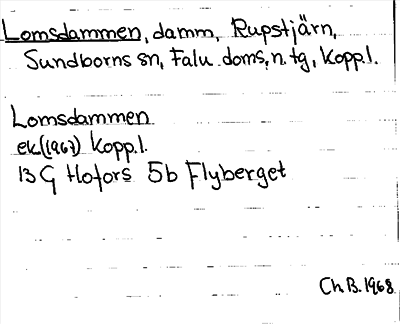 Lomsdammen, damm, Rupstjärn,
Sundborns sn, Falu doms. n. tg, Kopp.l.
Lomsdammen
ek. (1967) Kopp.l.
13 G Hofors 5b Flyberget
Ch B. 1968